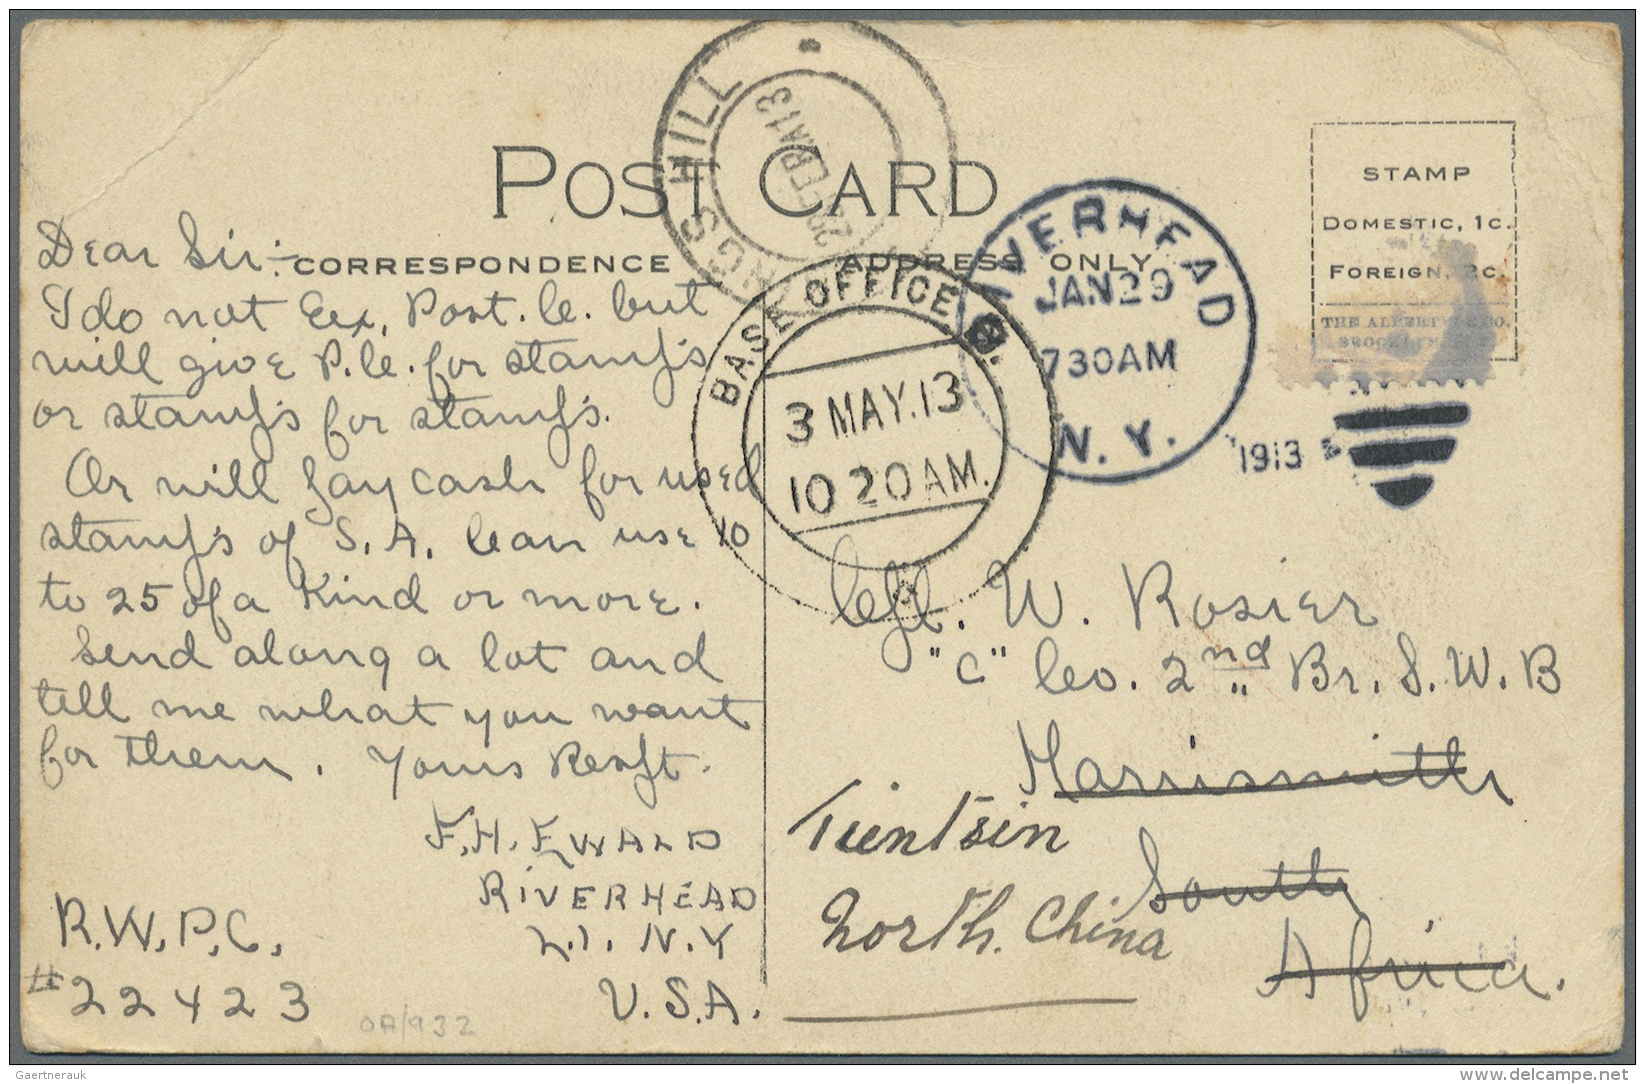 POST CARD
CORRESPONDENCE
ADDRESS ONLY
STAMP
DOMESTIC, 1c.
FOREIGN, 2c.
THE ALBERTYPE CO.
BROOKLYN
KINGS HILL
13
RIVERHEAD
JAN 29
730AM
N.Y.
1913
BASE OFFICE B.
3 MAY.13
10 20AM.
Dear Sir:-
I do not Ex, Post. C. but
will give P.C. for stamps
or stamps for stamps.
Or will pay cash for used
stamps of S.A. Can use 10
to 25 of a Kind or more.
Send along a lot and
tell me what you want
for them. Yours Respt.
F.H. EWALD
RIVERHEAD
L.I. N.Y
U.S.A.
R.W.P.C.
#22423
OA/932
Cpl. W. Rosier
"C" Co. 2nd Br. S.W.B
Harrismith
South
Africa.
Tientsin
North. China
Gaertnerauk
delcampe.net